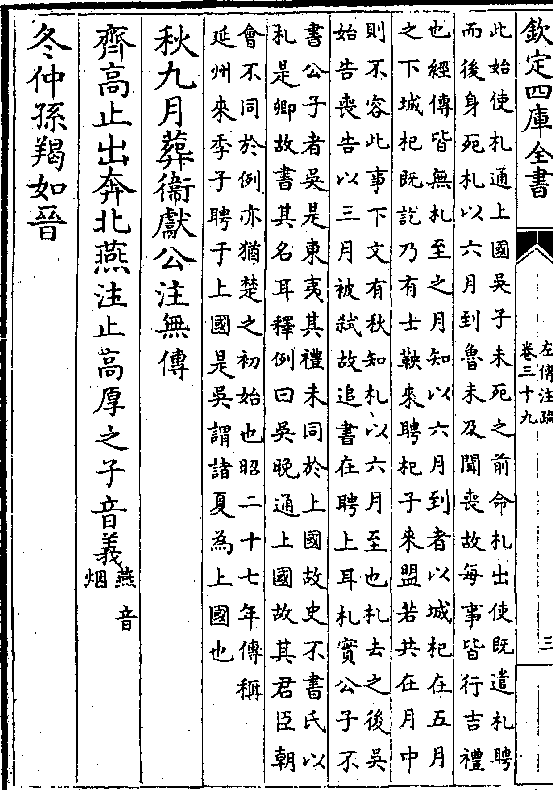 欽定四庫全書
左傳注疏
卷三十九
三
此始使札通上國吳子未死之前命札出使既遣札聘
而後身死札以六月到魯未及聞喪故每事皆行吉禮
也經傳皆無札至之月知以六月到者以城杞在五月
之下城杞既訖乃有士鞅來聘杞子來盟若共在月中
則不容此事下文有秋知札以六月至也札去之後吳
始告喪告以三月被弑故追書在聘上耳札實公子不
書公子者吳是東夷其禮未同於上國故史不書氏以
札是卿故書其名耳釋例曰吳晚通上國故其君臣朝
會不同於例亦猶楚之初始也昭二十七年傳稱
延州來季子聘于上國是吳謂諸夏為上國也
秋九月葬衞獻公注無傳
齊高止出奔北燕注止高厚之子音義燕音烟
冬仲孫羯如晉